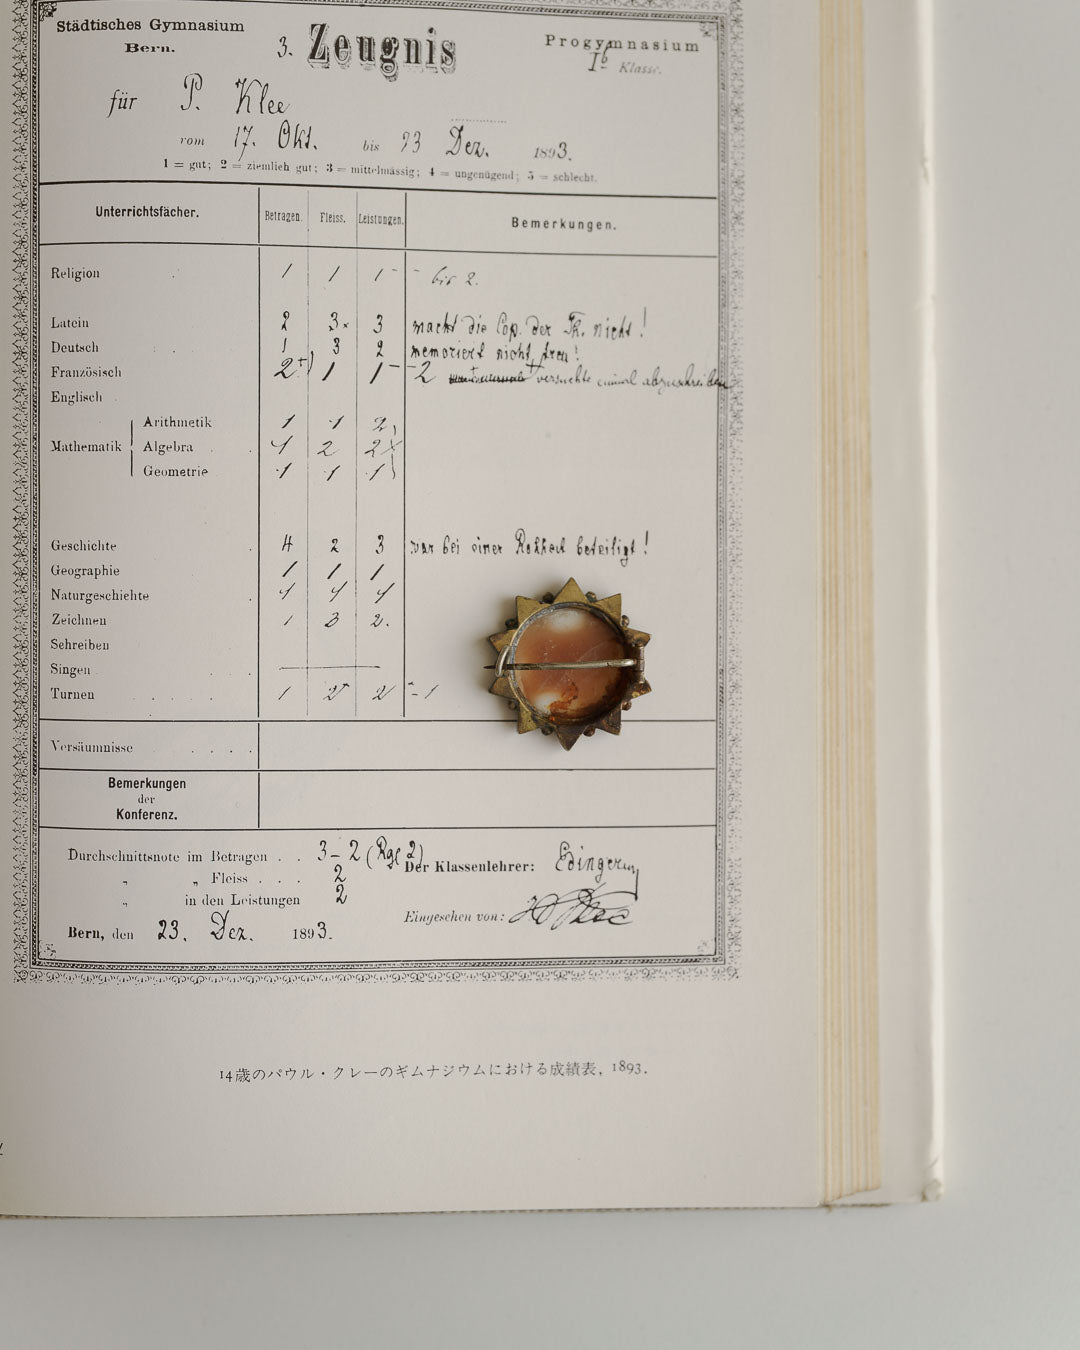 Städtisches Gymnasium
Bern.
3. Zeugnis
Progymnasium
Ib Klasse.
für P. Klee
vom 17. Okt. bis 23 Dez. 1893.
1 = gut; 2 = ziemlich gut; 3 = mittelmässig; 4 = ungenügend; 5 = schlecht.
Unterrichtsfächer. Betragen. Fleiss. Leistungen. Bemerkungen.
Religion 1 1 1- - bis 2.
Latein 2 3 3 macht die Cop. der Th. nicht!
Deutsch 1 3 2 memoriert nicht treu!
Französisch 2+) 1 1- -2 versuchte einmal abzuschreiben
Englisch
Arithmetik 1 1 2
Mathematik Algebra 1 2 2
Geometrie 1 1 1
Geschichte 4 2 3 war bei einer beteiligt!
Geographie 1 1 1
Naturgeschichte 1 1 1
Zeichnen 1 3 2.
Schreiben
Singen
Turnen 1 2 2 - 1
Versäumnisse
Bemerkungen
der
Konferenz.
Durchschnittsnote im Betragen . . 3-2 (Rgl 2)
„ „ Fleiss . . . 2
„ in den Leistungen 2
Der Klassenlehrer: Edinger
Eingesehen von: H Klee
Bern, den 23. Dez. 1893.
14歳のパウル・クレーのギムナジウムにおける成績表, 1893.